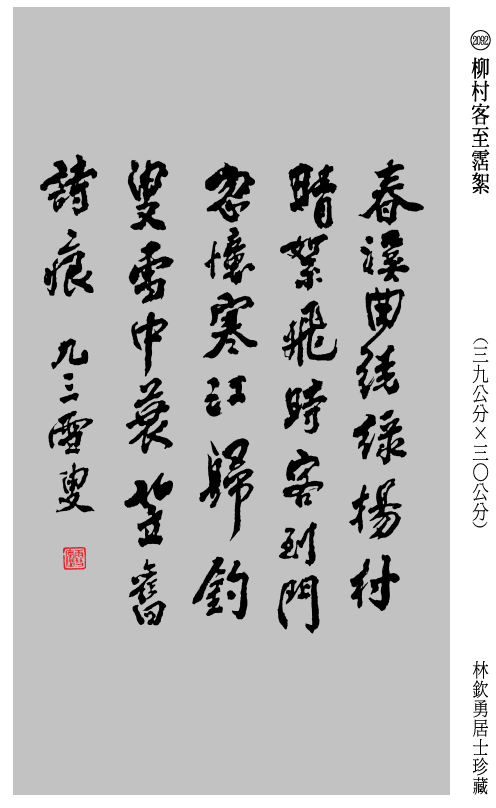 2092 柳村客至霑絮
（三九公分×三〇公分）
林欽勇居士珍藏
春溪曲繞綠楊村
晴絮飛時客到門
忽懷寒江歸釣
叟雪中蓑笠舊
詩痕 九三雪叟